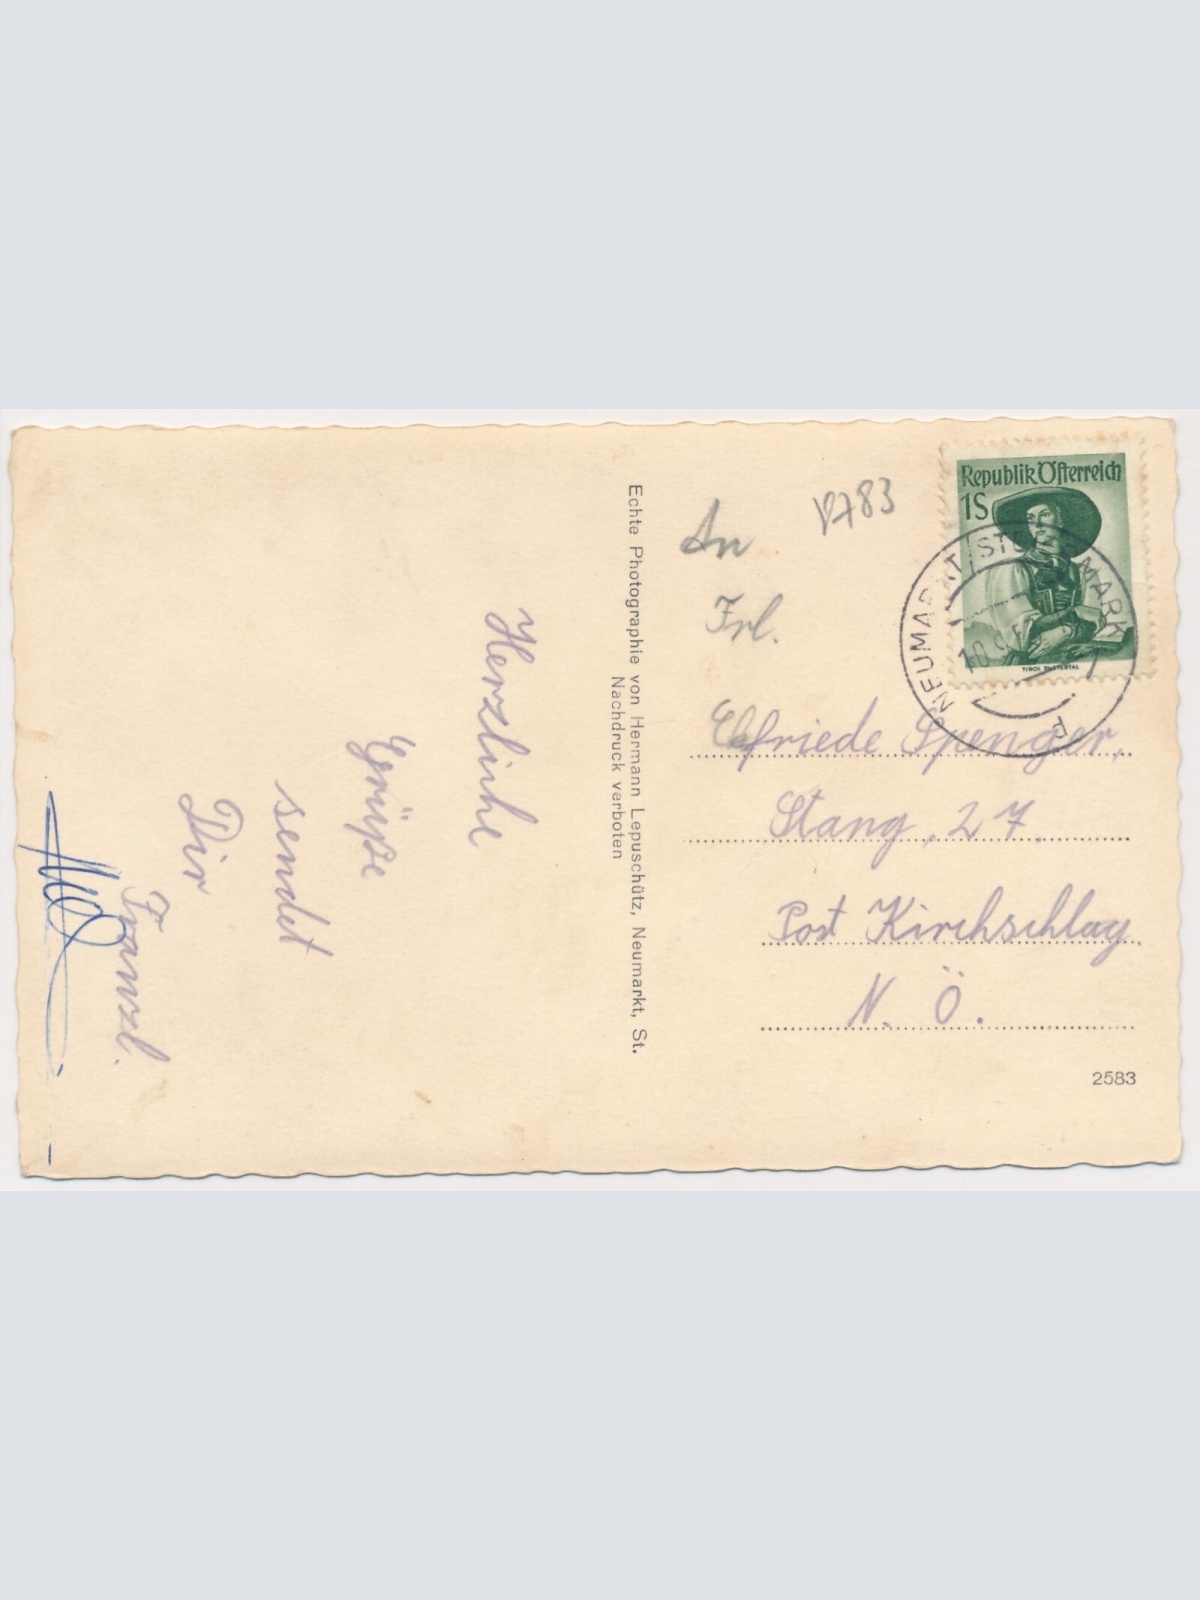 Herzliche
Grüße
sendet
Dir
Franzl.
Echte Photographie von Hermann Lepuschütz, Neumarkt, St.
Nachdruck verboten
An
Frl.
Elfriede Spenger,
Stang, 27.
Post Kirchschlag
N. Ö.
2583
Republik Österreich
1S
TIROL PUSTERTAL
NEUMARKT/STEIERMARK
10.9.5